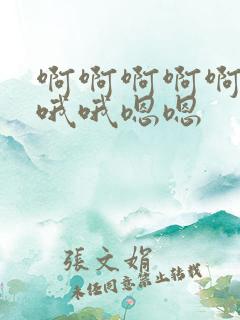 啊啊啊啊啊
哦哦嗯嗯
张文娟
未经同意禁止转载